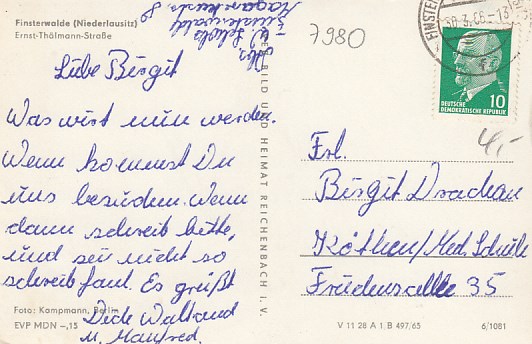 Finsterwalde (Niederlausitz)
Ernst-Thälmann-Straße
Abs.
7980
Liebe Birgit
Was wird nun werden.
Wenn kommst Du
uns besuchen. Wenn
dann schreib bitte,
und sei nicht so
schreibfaul. Es grüßt
Dich Waltraud
u. Manfred.
Foto: Kampmann, Berlin
EVP MDN -,15
BILD UND HEIMAT REICHENBACH I. V.
V 11 28 A 1 B 497/65
6/1081
10
DEUTSCHE
DEMOKRATISCHE REPUBLIK
4,-
Frl.
Birgit Drachau
Köthen/Med. Schule
Friedensallee 35